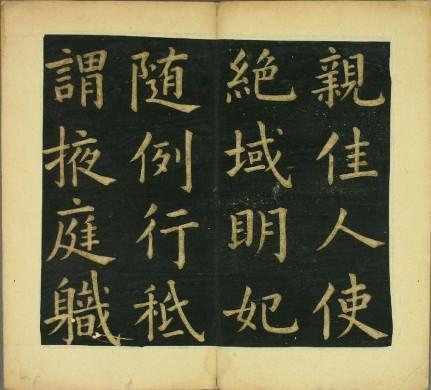 親佳人使
絶域明妃
随例行秖
謂掖庭職